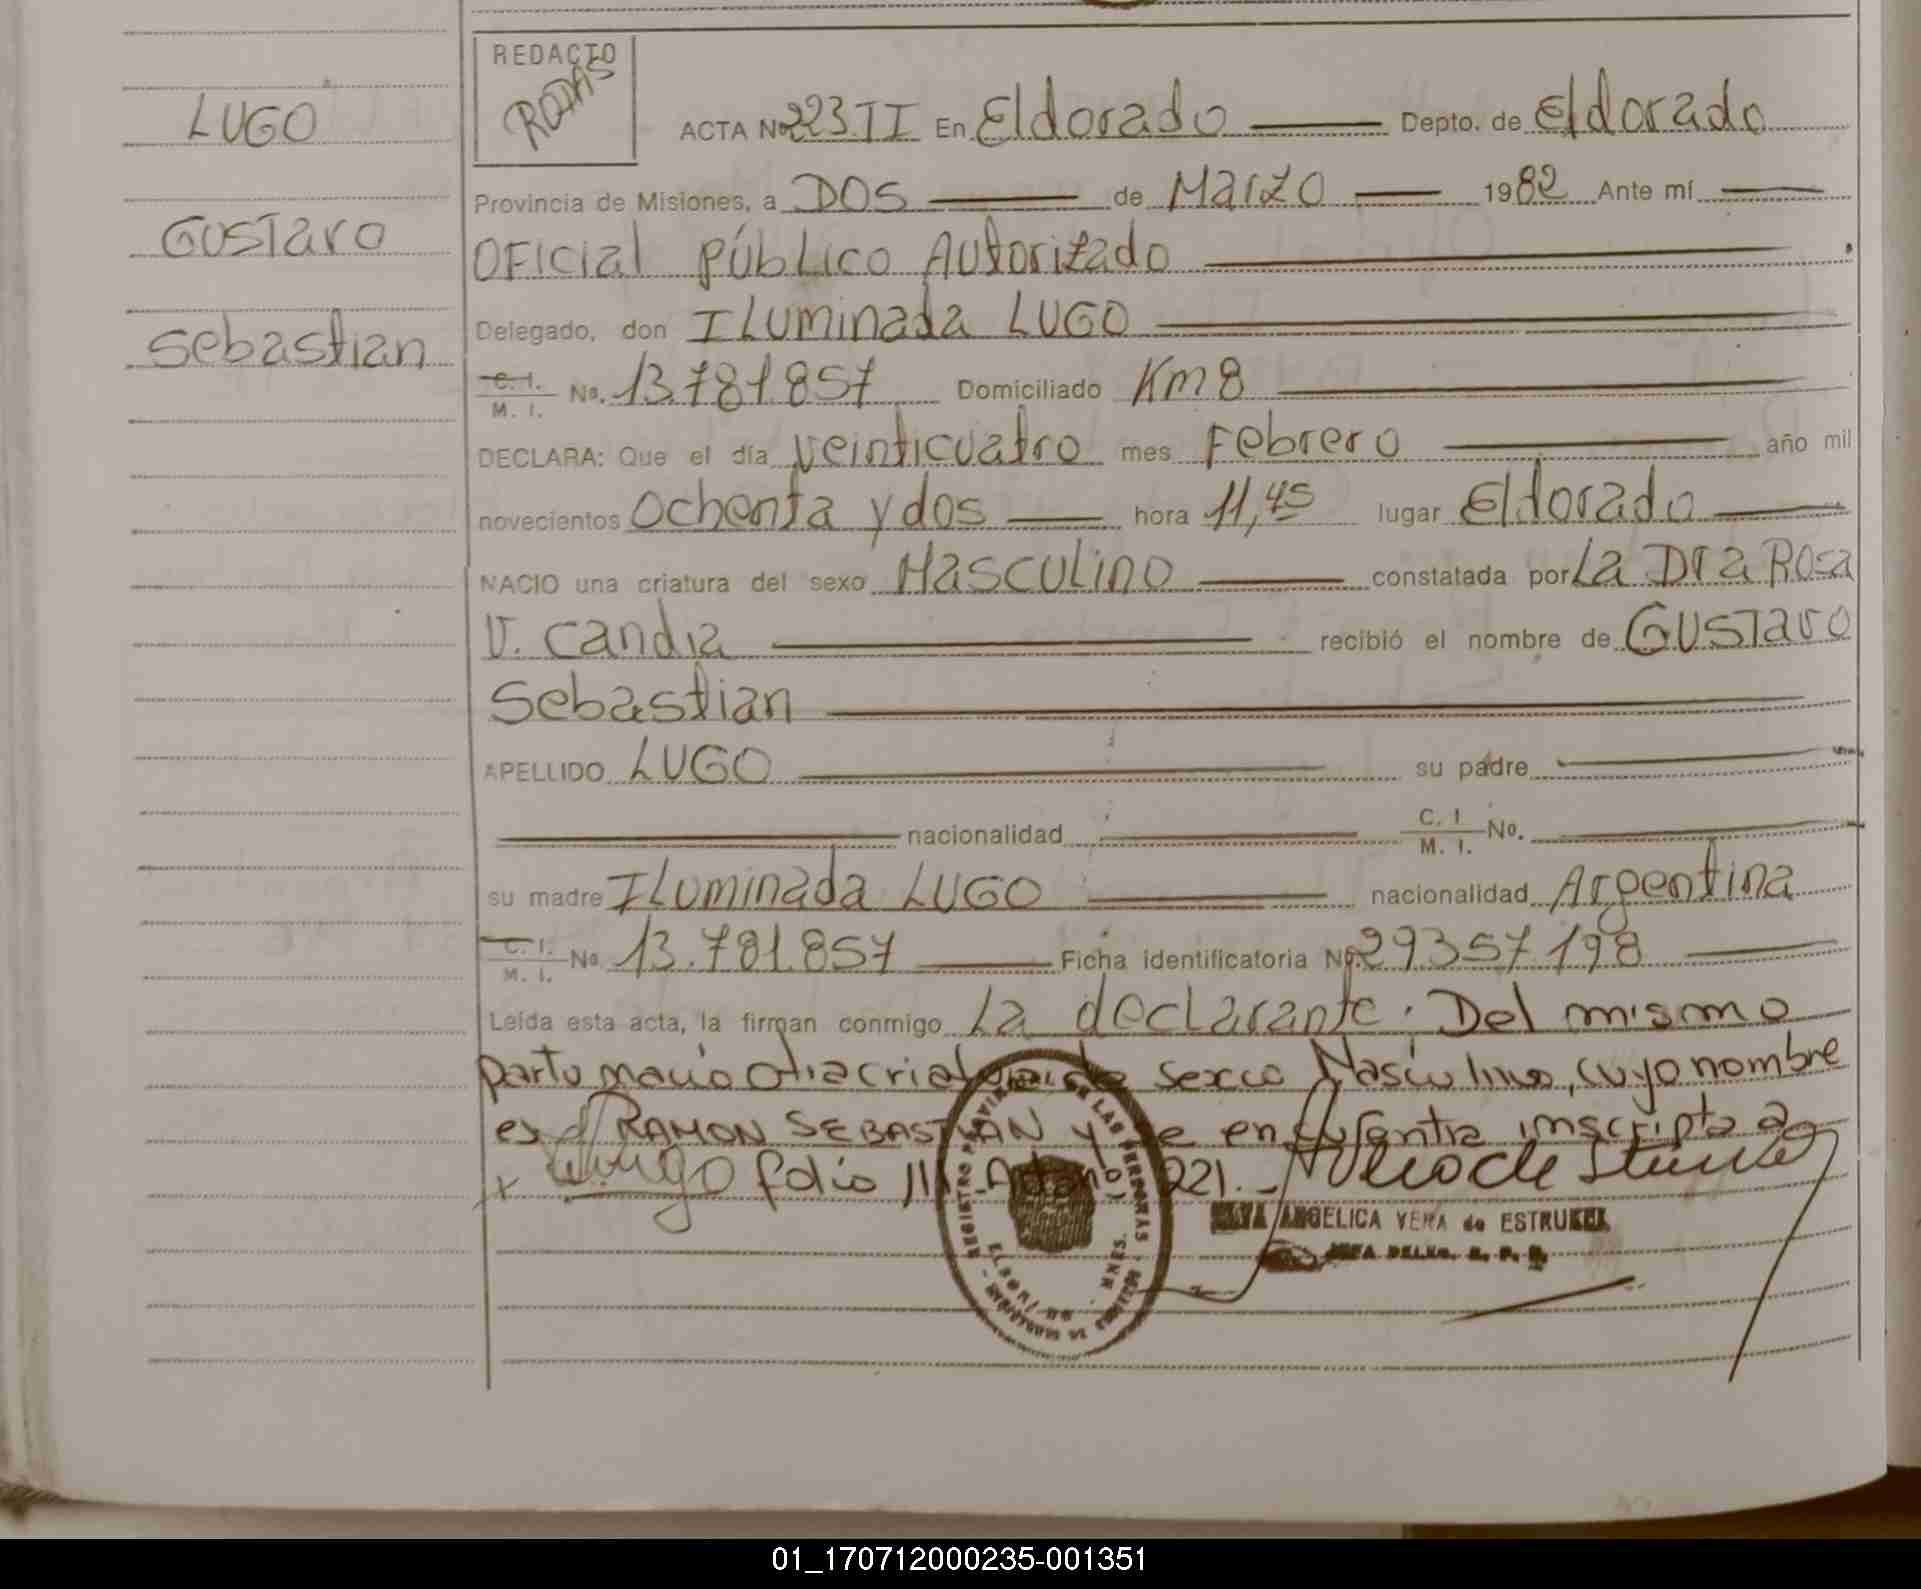 REDACTO
RODAS
LUGO
GUSTAVO
Sebastian
ACTA No 223.II En Eldorado Depto. de Eldorado
Provincia de Misiones, a DOS de Marzo 1982 Ante mí
Oficial Público Autorizado
Delegado, don Iluminada LUGO
C. I. M. I. No. 13.781.857 Domiciliado Km 8
DECLARA: Que el día Veinticuatro mes Febrero año mil
novecientos Ochenta y dos hora 11,45 lugar Eldorado
NACIO una criatura del sexo Masculino constatada por La Dra Rosa
V. Candia recibió el nombre de GUSTAVO
Sebastian
APELLIDO LUGO su padre
nacionalidad C. I. M. I. No.
su madre Iluminada LUGO nacionalidad Argentina
C. I. M. I. No 13.781.857 Ficha identificatoria No. 29357198
Leída esta acta, la firman conmigo La declarante. Del mismo
parto nació otra criatura de sexo Masculino, cuyo nombre
es RAMON SEBASTIAN y se encuentra inscripta a
folio 111 221.
REGISTRO PROVINCIAL DE LAS PERSONAS
ANGELICA VERA de ESTRUKEL
JEFA DELEG. R. P. P.
01_170712000235-001351